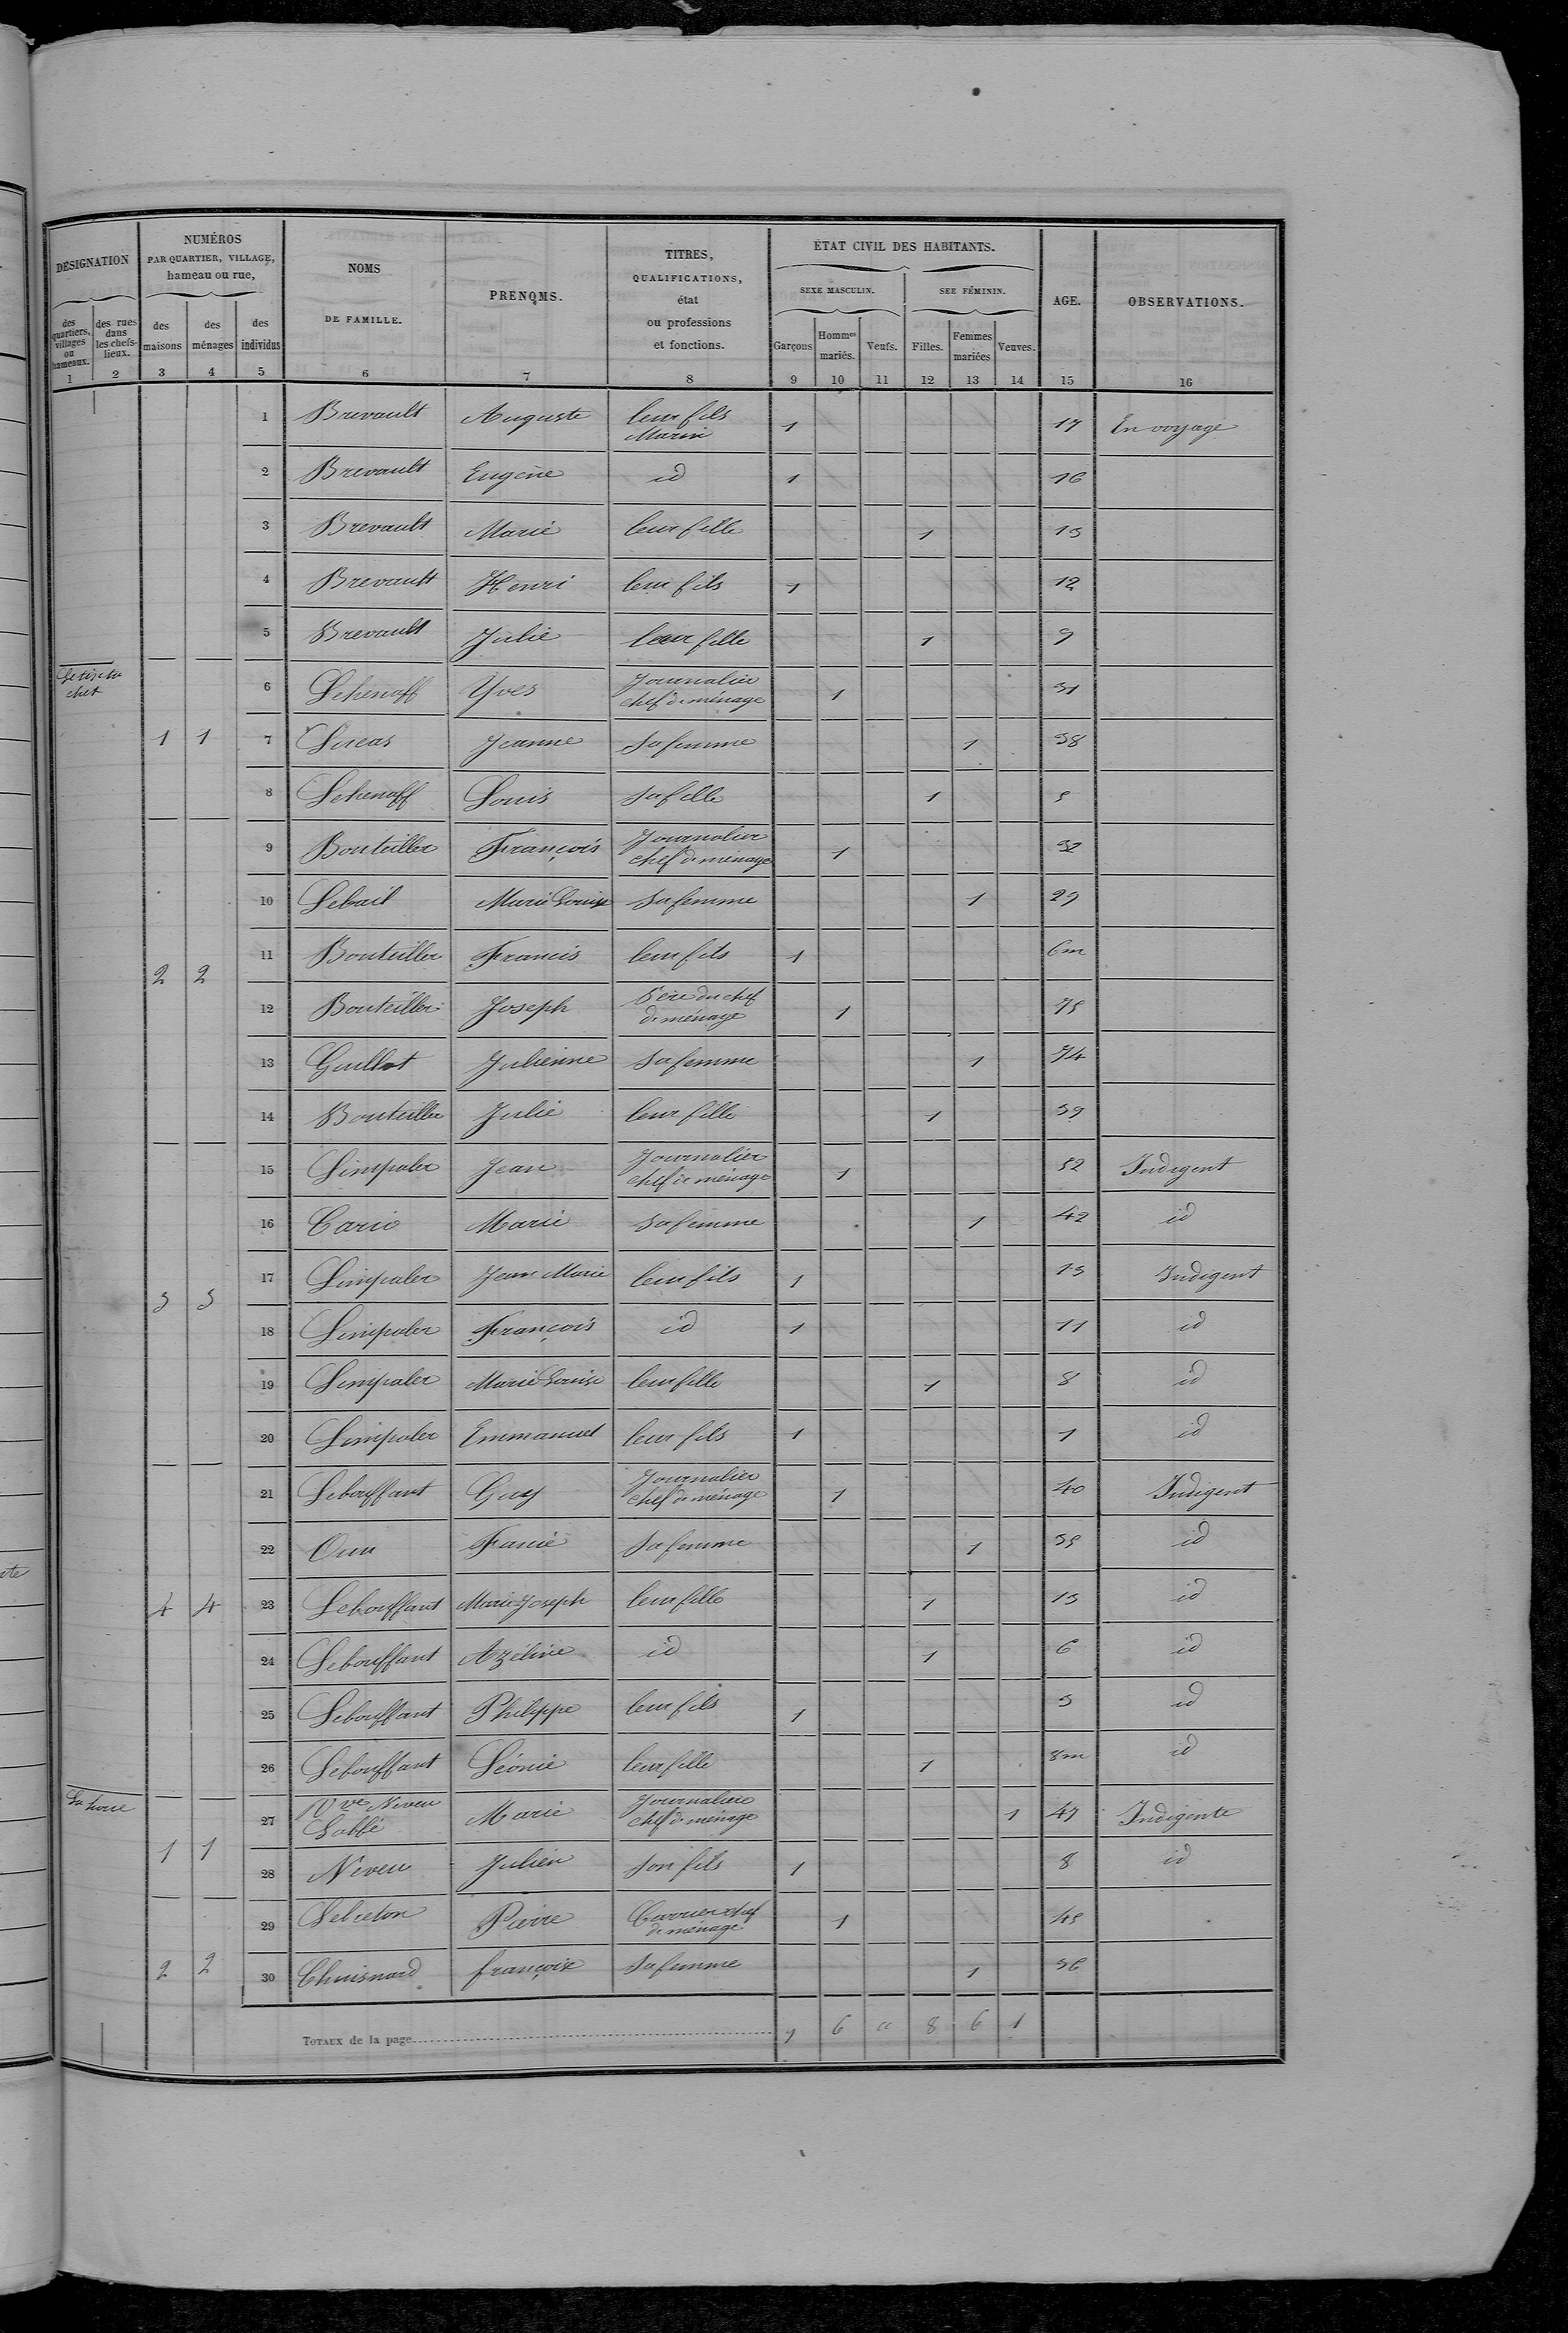 DESIGNATION
NUMÉROS
PAR QUARTIER, VILLAGE,
hameau ou rue,
NOMS
DE FAMILLE.
PRENOMS.
TITRES,
QUALIFICATIONS,
état
ou professions
et fonctions.
ÉTAT CIVIL DES HABITANTS.
SEXE MASCULIN.
SEE FÉMININ.
AGE.
OBSERVATIONS.
des quartiers, villages ou hameaux.
des rues dans les chefs-lieux.
des maisons
des ménages
des individus
Garçons
Hommes mariés.
Veufs.
Filles.
Femmes mariées
Veuves.
1 2 3 4 5 6 7 8 9 10 11 12 13 14 15 16
1 Brevault Auguste leur fils Marin 1 17 En voyage
2 Brevault Eugène id 1 16
3 Brevault Marie leur fille 1 13
4 Brevault Henri leur fils 1 12
5 Brevault Julie leur fille 1 9
6 Lehenaff Yves Journalier chef de ménage 1 31
1 1 7 Lucas Jeanne Sa femme 1 38
8 Lehenaff Louis Sa fille 1 5
9 Bouteiller François Journalier chef de ménage 1 32
10 Lebail Marie Louise Sa femme 1 29
11 Bouteiller Francis leur fils 1 6m
2 2
12 Bouteiller Joseph Père du chef de ménage 1 75
13 Guillot Julienne Sa femme 1 74
14 Bouteiller Julie leur fille 1 39
15 Limpaler Jean Journalier chef de ménage 1 52 Indigent
16 Cario Marie Sa femme 1 42 id
17 Limpaler Jean Marie leur fils 1 13 Indigent
3 3
18 Limpaler François id 1 11 id
19 Limpaler Marie Louise leur fille 1 8 id
20 Limpaler Emmanuel leur fils 1 1 id
21 Lebouffant Guy Journalier chef de ménage 1 40 Indigent
22 Sa femme 1 35 id
4 4 23 Lebouffant Marie Joseph leur fille 1 13 id
24 Lebouffant Azéline id 1 6 id
25 Lebouffant Philippe leur fils 1 3 id
26 Lebouffant Léonie leur fille 1 8m id
27 Vve Neveu Labbé Marie Journalière chef de ménage 1 47 Indigente
1 1
28 Neveu Julien Son fils 1 8 id
29 Lebreton Pierre Carrier chef de ménage 1 45
2 2 30 Chuisnard françoise Sa femme 1 36
TOTAUX de la page 9 6 " 8 6 1